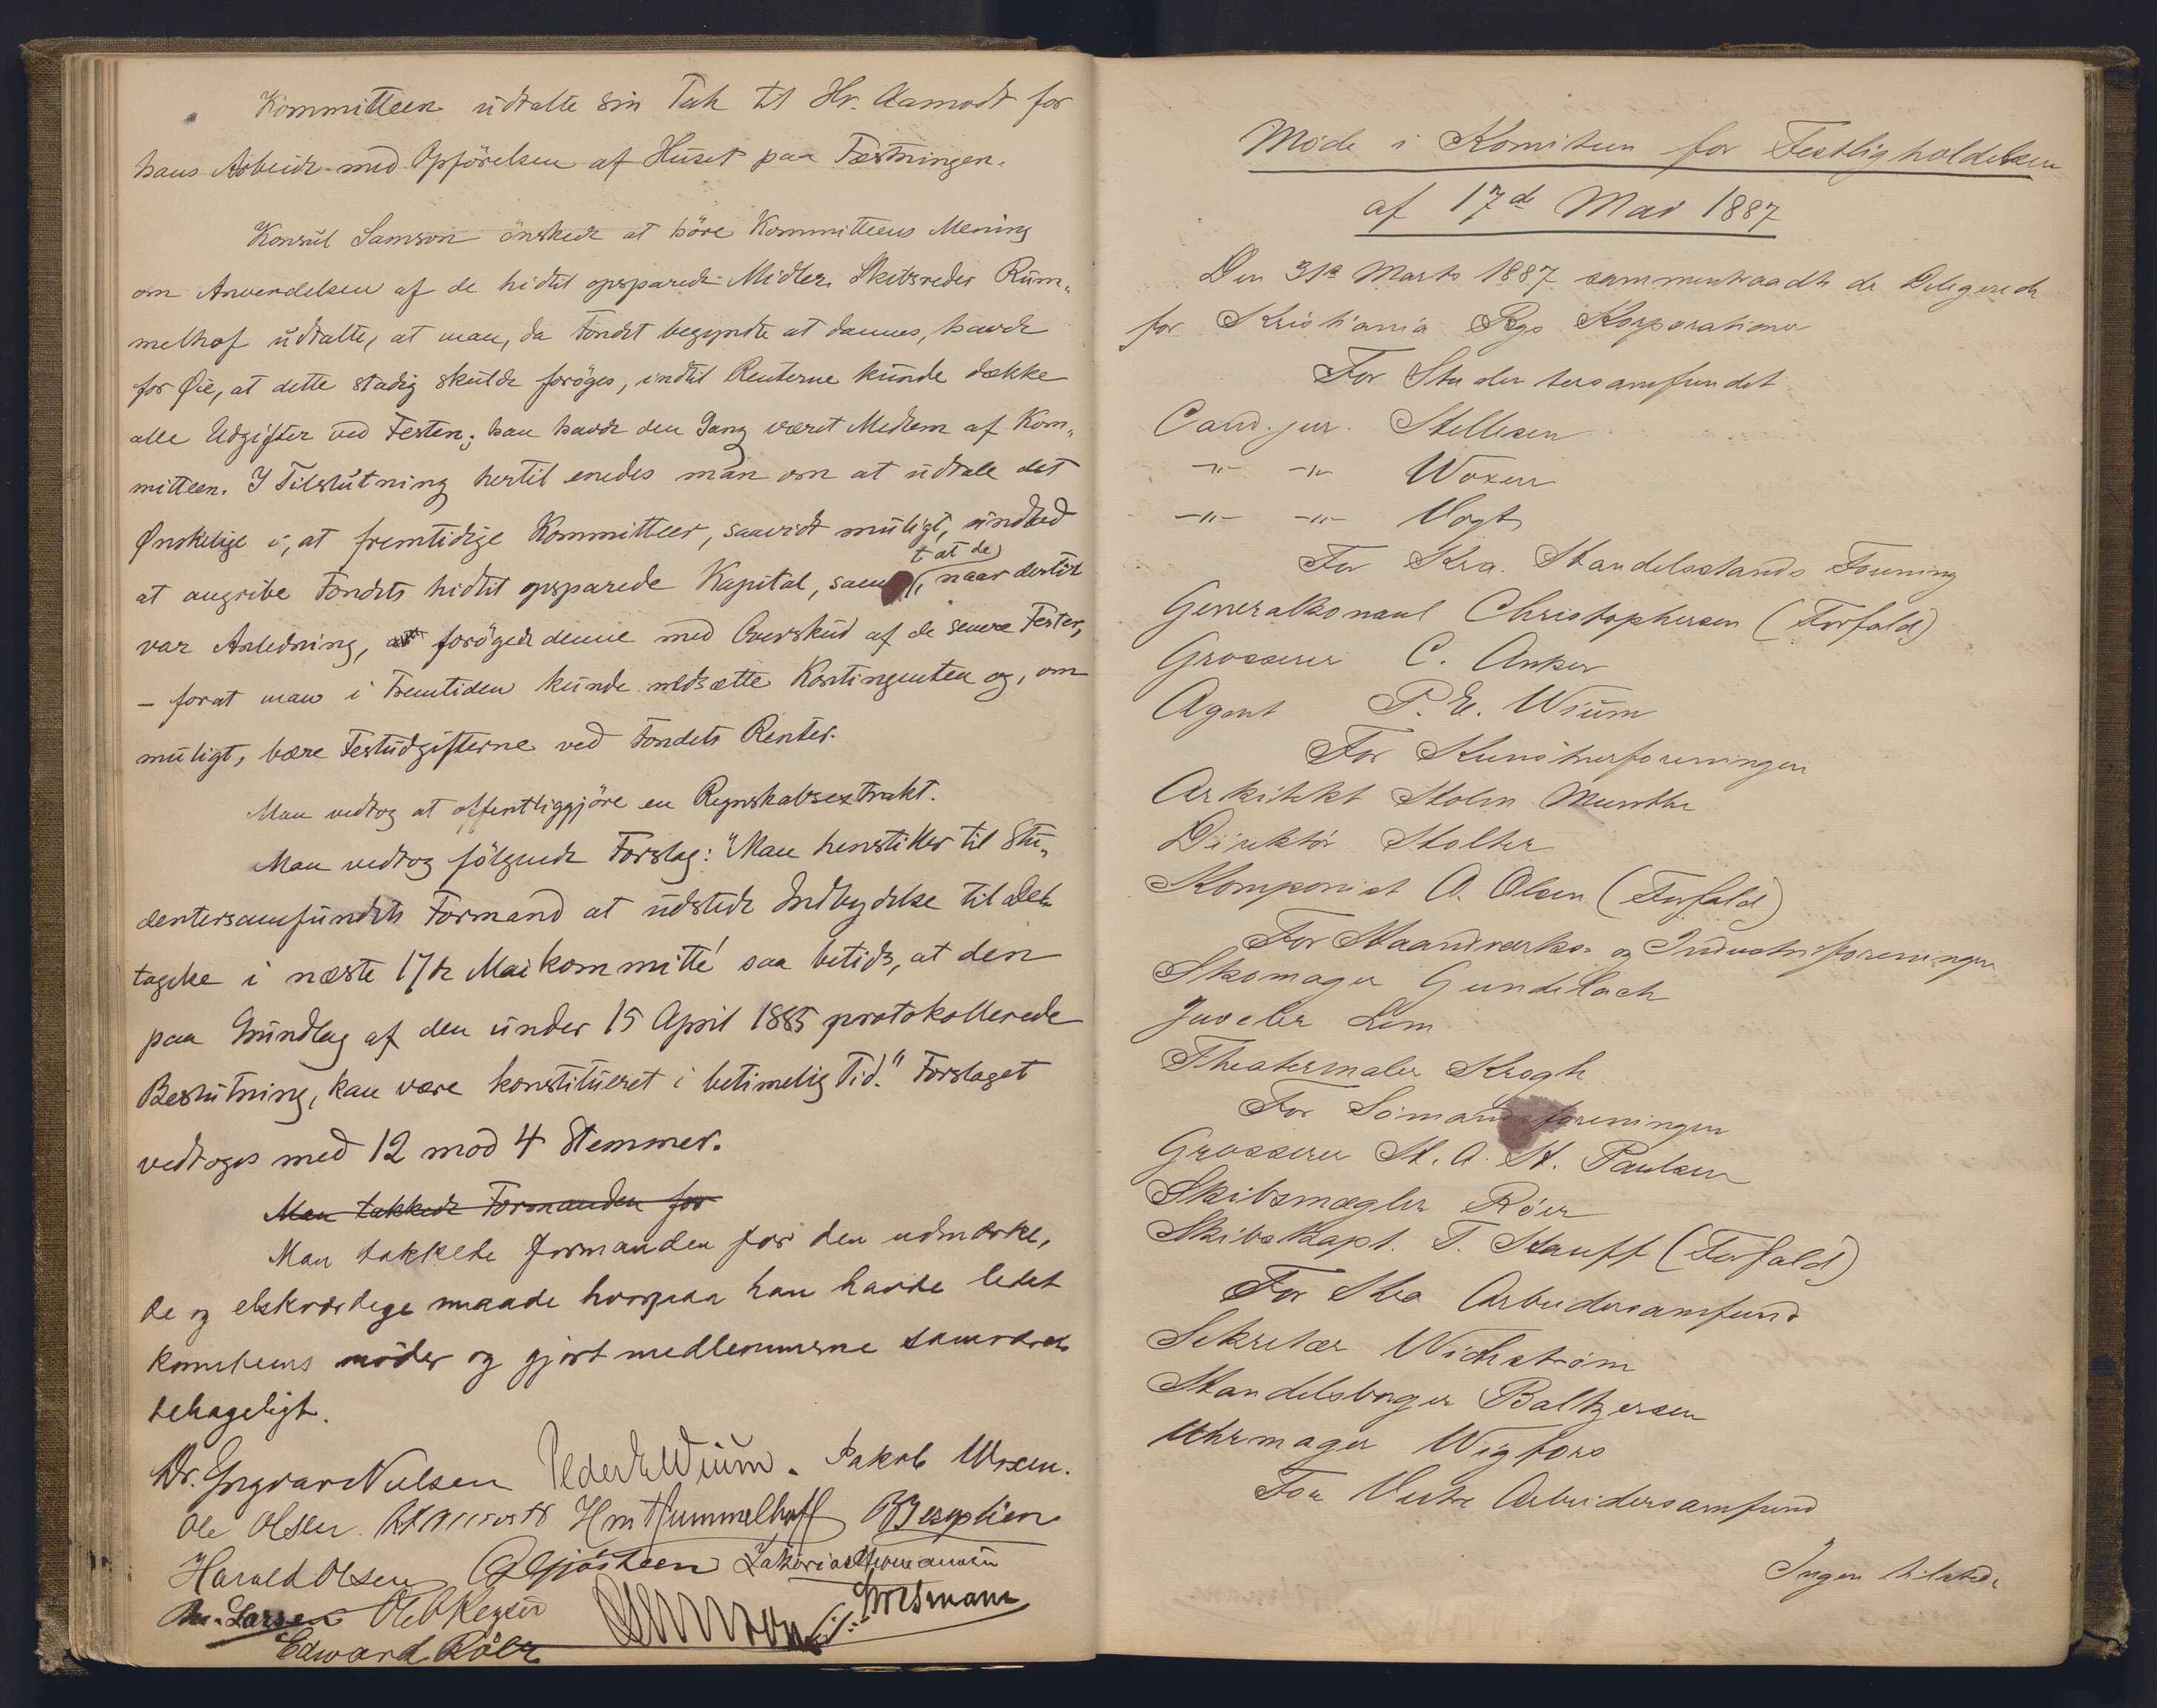 Kommitteen udtalte sin Tak til Hr. Aamodt for
hans Arbeide med Opførelsen af Huset paa Fæstningen.
Konsul Samson ønskede at høre Kommitteens Mening
om Anvendelsen af de hidtil opsparede Midler. Skibsreder Rum„
melhof udtalte, at man, da Fondet begyndte at dannes, havde
for Øie, at dette stadig skulde forøges, indtil Renterne kunde dække
alle Udgifter ved Festen; han havde den Gang været Medlem af Kom„
mitteen. I Tilslutning hertil enedes man om at udtale det
Ønskelige i, at fremtidige Kommitteer, saavidt muligt, undlod
at angribe Fondets hidtil opsparede Kapital, samt at de, naar dertil
var Anledning, forøgede denne med Overskud af de senere Fester,
– forat man i Fremtiden kunde nedsætte Kontingenten og, om
muligt, bære Festudgifterne ved Fondets Renter.
Man vedtog at offentliggjøre en Regnskabsextrakt.
Man vedtog følgende Forslag: "Man henstiller til Stu„
dentersamfundets Formand at udstede Indbydelse til Del„
tagelse i næste 17de Maikommitté saa betids, at den
paa Grundlag af den under 15 April 1885 protokollerede
Beslutning, kan være konstitueret i betimelig Tid." Forslaget
vedtoges med 12 mod 4 Stemmer.
Man takkede Formanden for
Man takkede formanden for den udmærke,
de og elskværdige maade hvorpaa han havde ledet
komiteens møder og gjort medlemmerne samværet
behageligt.
Dr. Yngvar Nielsen Peder E Wium. Jakob Woxen.
Ole Olsen. Hm Rummelhoff
Harald Olsen
Larsen Ole O Keyser
Edward Röer
Møde i Komiteen for Festligholdelsen
af 17de Mai 1887
Den 31te Marts 1887 sammentraadte de Delegerede
for Kristiania Bys Korporationer
For Studentersamfundet
Cand. jur. Stellesen
-"- -"- Woxen
-"- -"- Vogt
For Kra. Handelsstands Forening
Generalkonsul Christophersen (Forfald)
Grosserer C. Anker
Agent P. E. Wium
For Kunstnerforeningen
Arkitekt Holm Munthe
Direktør Holter
Komponist O. Olsen (Forfald)
For Haandværks- og Industriforeningen
Skomager Gundelach
Juveler Lem
Theatermaler Krogh
For Sømandsforeningen
Grosserer H. A. H. Paulsen
Skibsmægler Røer
Skibskapt. T. Hauff (Forfald)
For Kra Arbeidersamfund
Sekretær Wickstrøm
Handelsborger Baltzersen
Uhrmager Wigfors
For Vestre Arbeidersamfund
Ingen tilstede